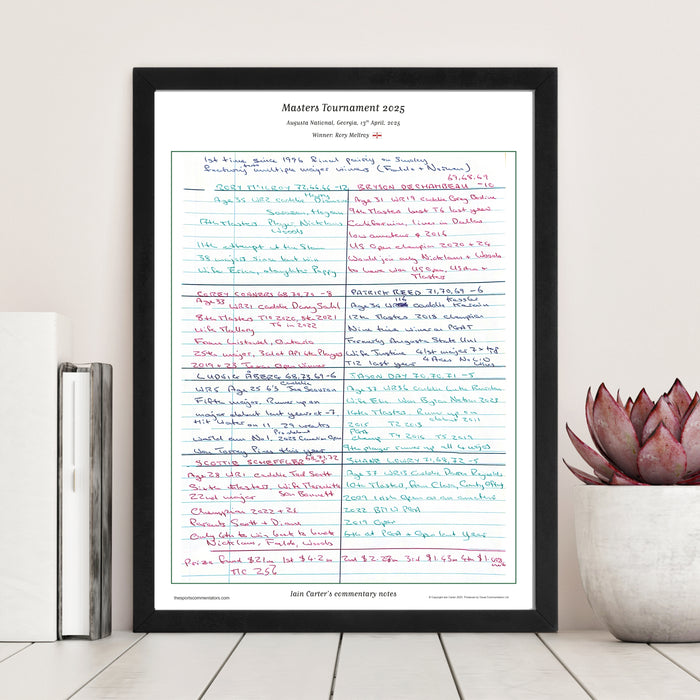 Masters Tournament 2025
Augusta National, Georgia, 13th April, 2025
Winner: Rory McIlroy
1st time since 1996 final pairing on Sunday
featuring two multiple major winners (Faldo + Norman)
RORY McILROY 72,66,66 -12
Age 35 WR2 caddie Harry Diamond
Sarazen, Hogan
Player, Nicklaus
Woods
11th attempt at the Slam
38 majors since last win
Wife Erica, daughter Poppy
69,68,69
BRYSON DECHAMBEAU -10
Age 31 WR19 caddie Greg Bodine
9th Masters best T6 last year
Californian, lives in Dallas
low amateur @ 2016
US Open champion 2020 + 24
Would join only Nicklaus + Woods
to have won US Open, US Am +
Masters
COREY CONNERS 68,70,70 -8
Age 33 WR21 Caddie Danny Sahl
8th Masters T10 2020, 8th 2021
T6 in 2022
Wife Mallory
From Listowel, Ontario
25th major,
2019 + 23 Texas Open Winner
PATRICK REED 71,70,69 -6
Age 34 WR 116 caddie Kessler Karain
12th Masters 2018 champion
Nine time winner on PGAT
Formerly Augusta State Uni
Wife Justine 41st major 7 x top
T12 last year
LUDVIG ÅBERG 68,73,69 -6
WR5 Age 25 caddie Joe Skovron
Fifth major, Runner up on
major debut last year at -7
Hit Water on 11. 29 weeks
world am No.1
Won Torrey Pines this year
JASON DAY 70,70,71 -5
Age 37 WR36 Caddie Luke Reardon
Wife Ellie Won Byron Nelson 2023
14th Masters Runner up on
debut 2011
2015 T2 2013
PGA
champ T4 2016 T5 2019
SCOTTIE SCHEFFLER 68,71,72
Age 28 WR1 Caddie Ted Scott
Sixth Masters, Wife Meredith
22nd major Son Bennett
Champion 2022 + 24
Parents Scott + Diane
Only 4th to win back to back
Nicklaus, Faldo, Woods
SHANE LOWRY 71,68,72 -5
Age 37 WR15 Caddie Darren Reynolds
10th Masters, from Clara, County Offaly
2009 Irish Open as an amateur
2022 BMW PGA
2019 Open
6th at PGA + Open last Year
Prize fund $21m 1st $4.2m 2nd $2.28m 3rd $1.43m 4th
Iain Carter's commentary notes
thesportscommentators.com